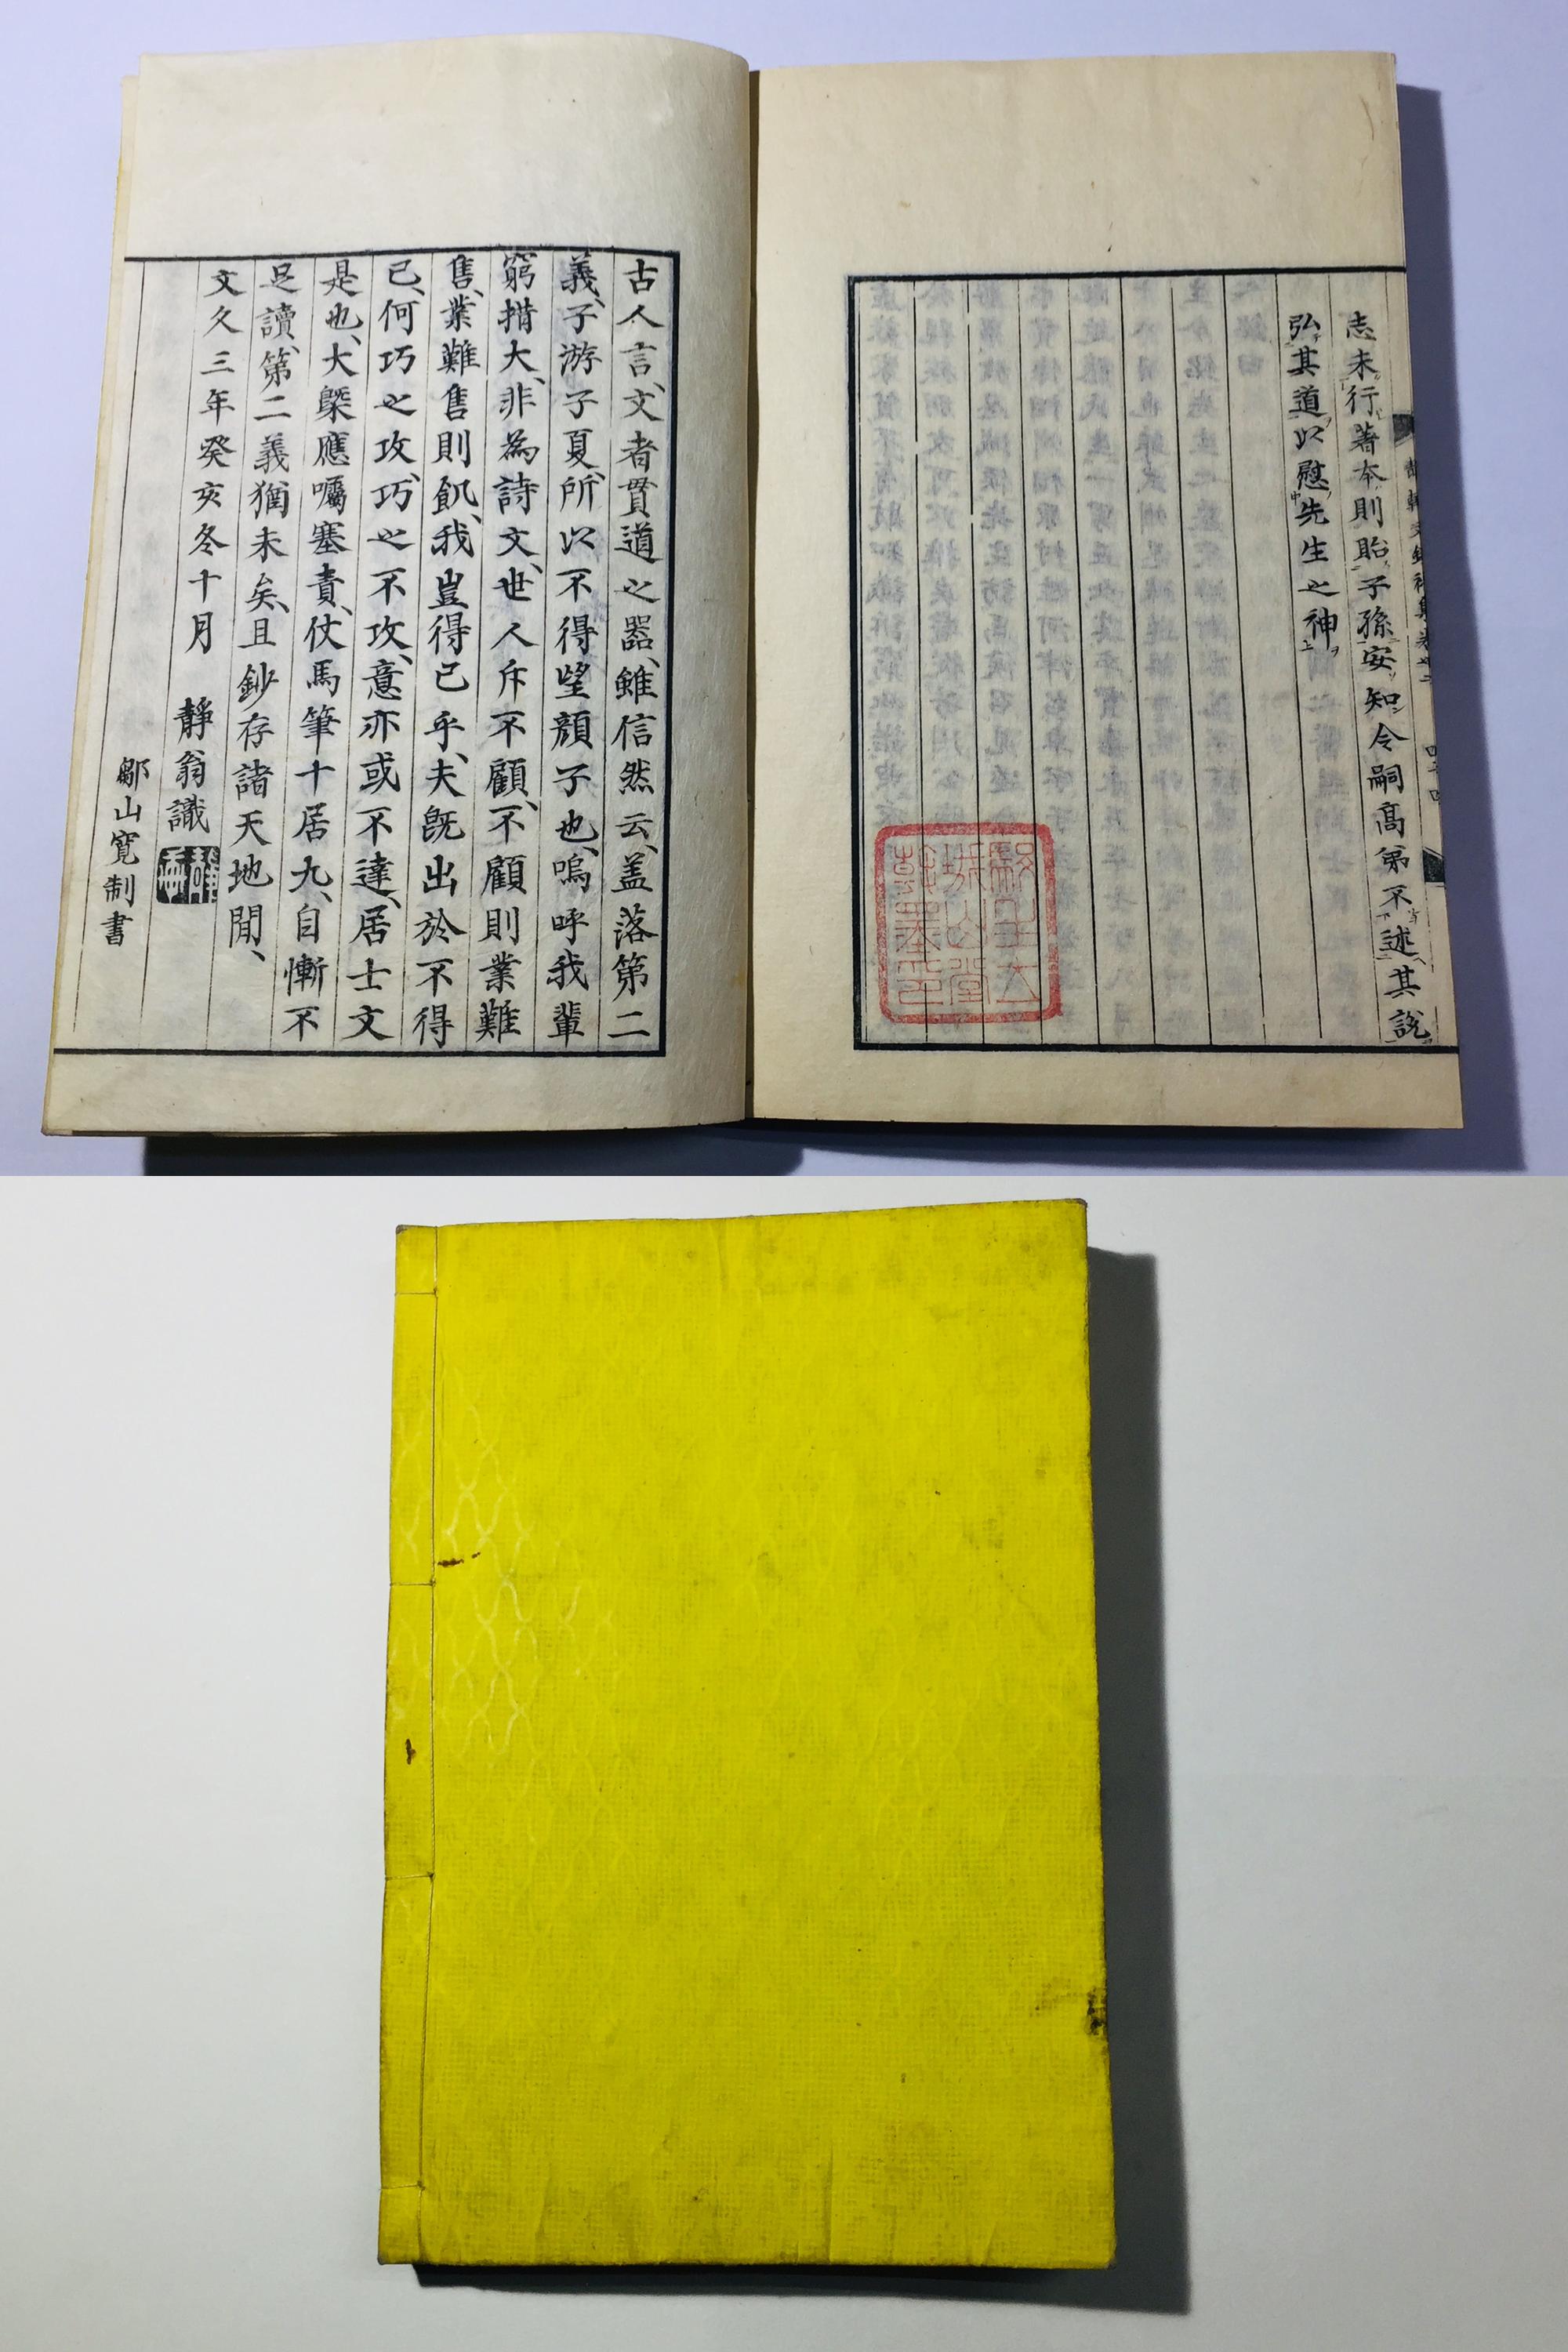 志未行著本則貽子孫安知令嗣高弟不述其說
弘其道以慰先生之神
古人言、文者貫道之器、雖信然云、盖落第二
義、子游子夏、所以不得望顔子也、嗚呼我輩
窮措大、非為詩文、世人斥不顧、不顧則業難
售、業難售則飢、我豈得已乎、夫既出於不得
已、何巧之攻、巧之不攻、意亦或不達、居士文
是也、大槩應囑塞責、仗馬筆十居九、自慚不
足讀、第二義猶未矣、且鈔存諸天地間、
文久三年癸亥冬十月 靜翁識
鄒山寛制書